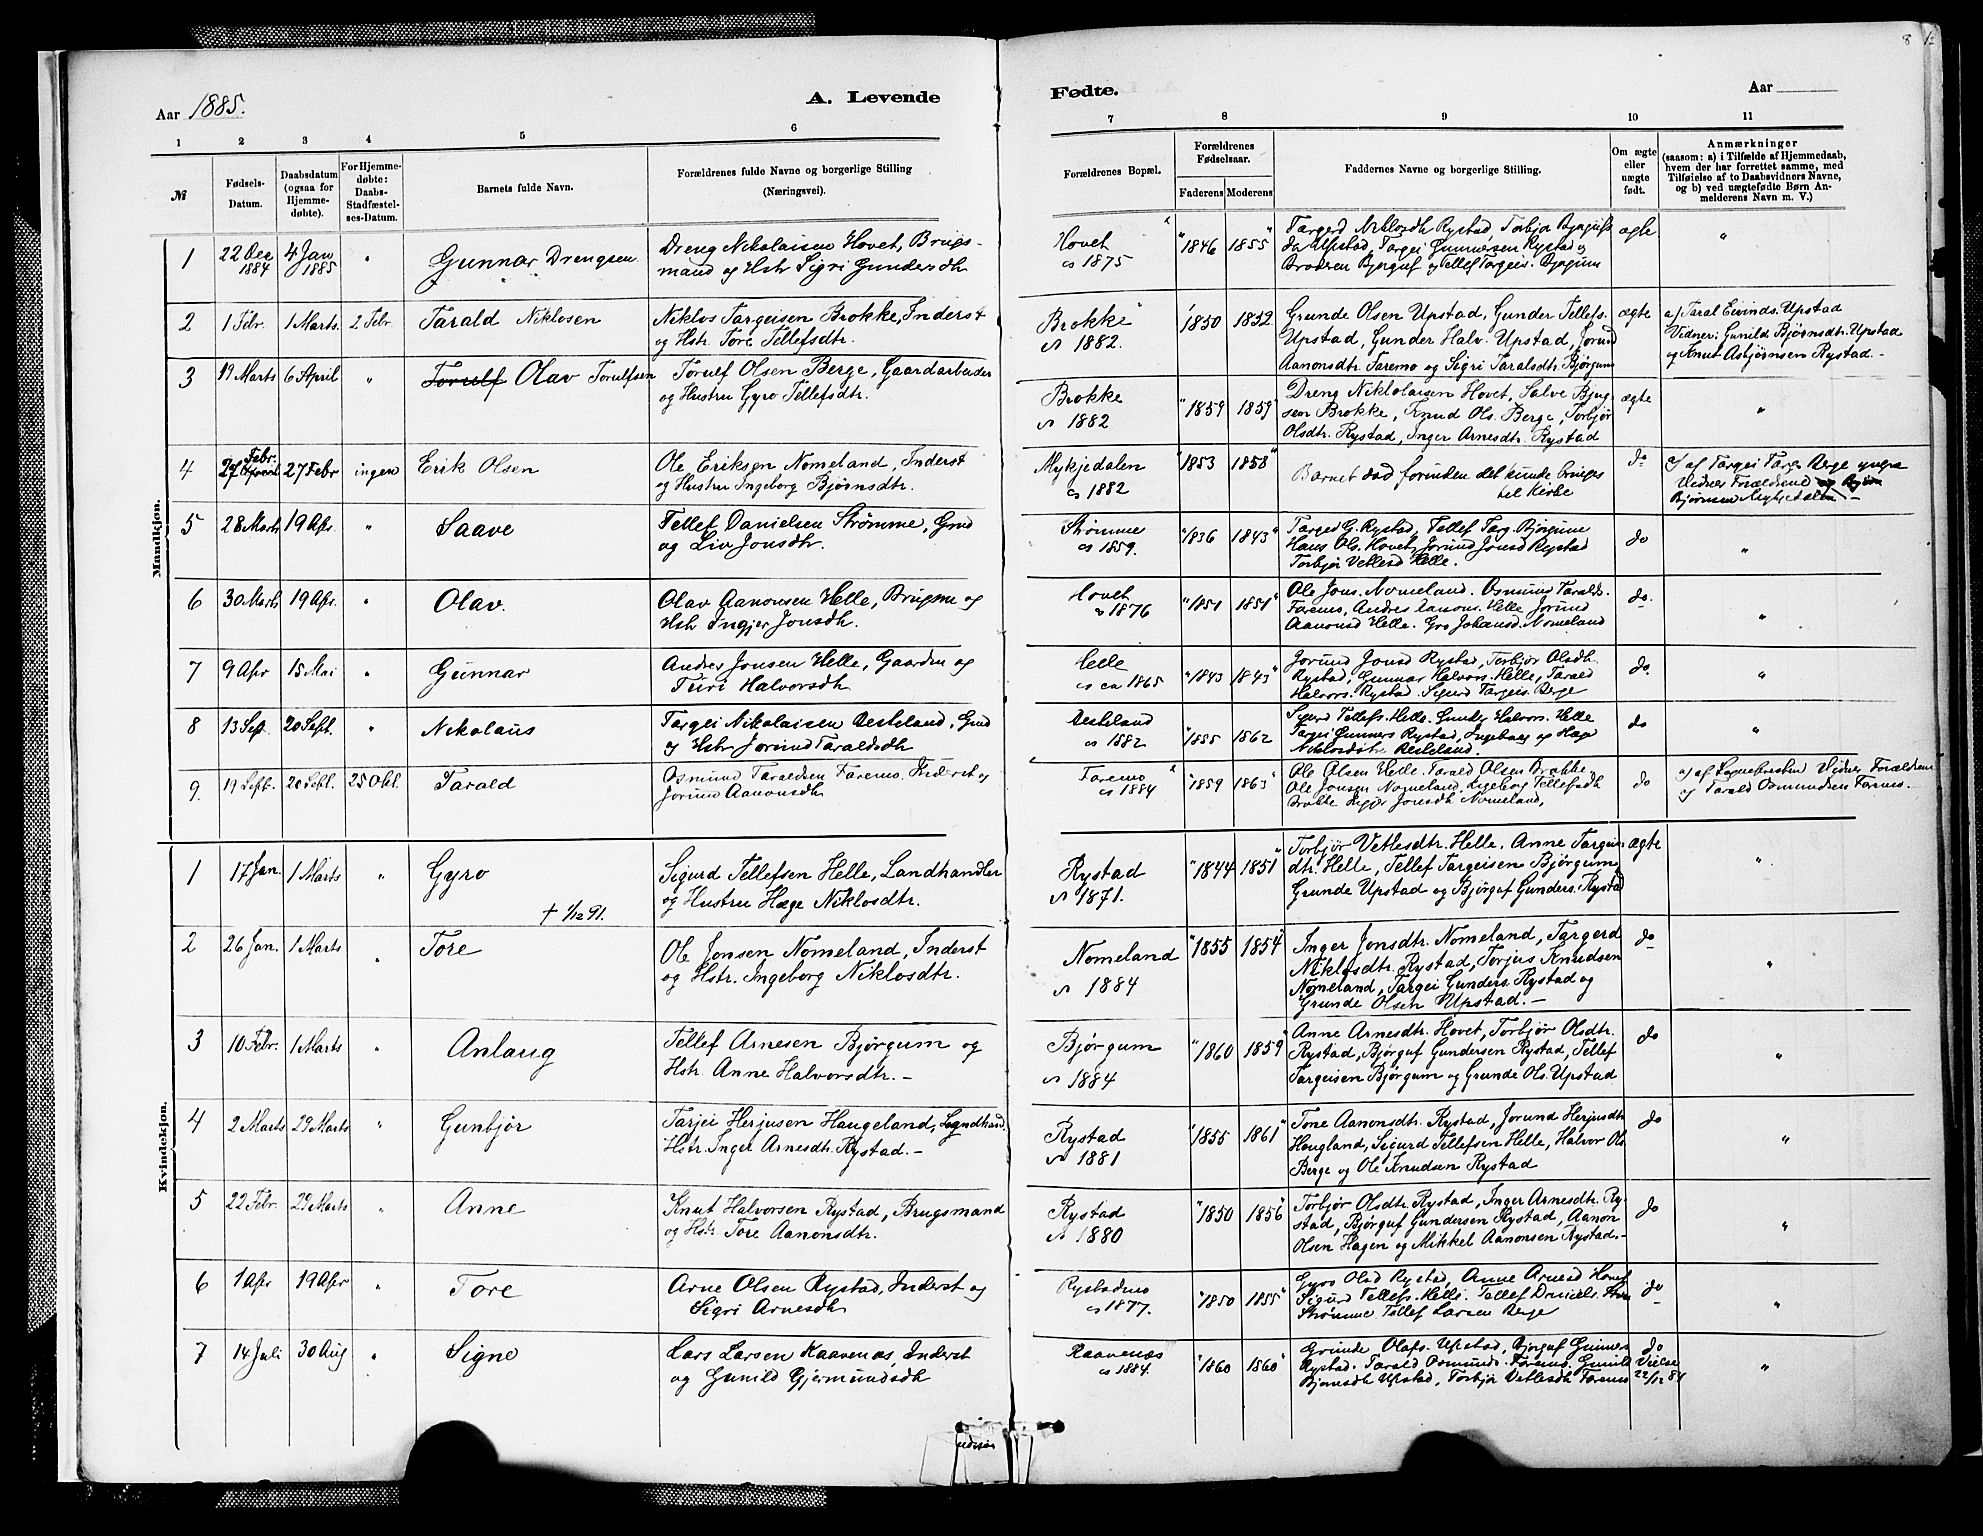 8
Aar 1885.
A. Levende
Fødte.
Aar
1 2 3 4 5 6 7 8 9 10 11
№
Fødsels-
Datum.
Daabsdatum
(ogsaa for
Hjemme-
døbte).
For Hjemme-
døbte:
Daabs-
Stadfæstel-
ses-Datum.
Barnets fulde Navn.
Forældrenes fulde Navne og borgerlige Stilling
(Næringsvei).
Forældrenes Bopæl.
Forældrenes
Fødselsaar.
Faderens Moderens
Faddernes Navne og borgerlige Stilling.
Om ægte
eller
uægte
født.
Anmærkninger
(saasom: a) i Tilfælde af Hjemmedaab,
hvem der har forrettet samme, med
Tilføielse af to Daabsvidners Navne,
og b) ved uægtefødte Børn An-
melderens Navn m. V.)
Mandkjøn.
1
22 Dec
1884
4 Jan
1885
"
Gunnar Drengsen
Dreng Nikolaisen Hovet, Brugs-
mand og Hstr Sigri Gundersdh
Hovet
cs 1875
1846 1855
Targerd Niklosdh Rystad, Torbjør Bjørgufs
dr Upstad, Targei Gunnersen Rystad og
Broderen Bjørguf og Tellef Targeis. Bjørgum
ægte
"
2
1 Febr.
1 Marts.
2 Febr.
Tarald Niklosen
Niklos Targeisen Brokke, Inderst
og Hstr. Tore Tellefsdtr.
Brokke
cs 1882.
1850 1852
Grunde Olsen Upstad, Gunder Tellefs.
Upstad, Gunder Halv. Upstad, Jorund
Aanonsdtr. Faremo og Sigri Taralsdtr. Bjørgum
ægte
a/ Taral Eivinds. Upstad
Vidner: Gunild Bjørnsdtr. Upstad
og Knut Asbjørnsen Rystad. -
3
19 Marts
6 April
"
Torulf Olav Torulfsen
Torulf Olsen Berge, Gaardarbeider
og Hustru Gyro Tellefsdtr.
Brokke
cs 1882
1859 1859
Dreng Niklolaisen Hovet, Salve Bjug-
sen Brokke, Knud Ols. Berge, Torbjør
Olsdtr. Rystad, Inger Arnesdtr. Rystad
ægte
"
4
Febr.
27 Febr
ingen
Erik Olsen
Ole Eriksen Nomeland, Inderst
og Hustru Ingeborg Bjørnsdtr.
Mykjedalen
cs 1882
1853 1858
Barnet død forinden det kunde bringes
til Kirke
do
a/ af Targei Targ. Berge yngre
Vidner Forældrene
Bjørnsen Mykjedalen -
5
28 Marts
19 Apr.
"
Saave
Tellef Danielsen Strømme, Grd
og Liv Jonsdtr.
Strømme
cs 1859.
1836 1843
Targed G. Rystad, Tellef Targ. Bjørgum
Hans Ols. Hovet, Jorund Jonsd Rystad
Torbjør Vetlesd Helle.
do
"
6
30 Marts
19 Apr.
"
Olav.
Olav Aanonsen Helle, Brugsm og
Hstr Ingjer Jonsdh.
Hovet
cs 1876
1851 1851
Ole Jons. Nomeland. Osmund Taralds.
Faremo, Andres Aanons. Helle Jorund
Aanonsd Helle. Gro Johansd. Nomeland
do.
"
7
9 Apr
15 Mai
"
Gunnar
Andres Jonsen Helle, Gaardm og
Turi Halvorsdh
Helle
cs ca 1865
1843 1843
Jorund Jonsd Rystad, Torbjør Olsdh
Rystad, Gunnar Halvors. Helle, Tarald
Halvors. Rystad. Sigurd Targeis. Berge
do.
"
8
13 Sept.
20 Sept.
"
Nikolaus
Targei Nikolaisen Besteland, Grd
og Hstr Jorund Taraldsdh
Besteland
cs 1882
1855 1862
Sigurd Tellefs. Helle. Gunder Halvors. Helle
Targei Gunners Rystad, Ingeborg og Hæge
Niklosdøtr Besteland.
do
"
9.
19 Septbr.
20 Septbr.
25 Okt.
Tarald
Osmund Taraldsen Faremo. Inderst og
Jorund Aanonsdh
Faremo
cs 1884
1859 1863
Ole Olsen Helle. Tarald Olsen Brokke
Ole Jonsen Nomeland. Ingeborg Tellefsdh
Brokke Inger Jonsdh Nomeland,
do
a/ af Sognepresten Vidner Forældrene
og Tarald Osmundsen Faremo.
Kvindekjøn.
1
17 Jan.
1 Marts
"
Gyro
† 1/12 91.
Sigurd Tellefsen Helle, Landhandler
og Hustru Hæge Niklosdtr.
Rystad
cs 1871.
1844 1851
Torbjør Vetlesdtr. Helle. Anne Targeis
dtr. Helle, Tellef Targeisen Bjørgum,
Grunde Upstad og Bjørguf Gunders. Rystad
ægte
"
2
26 Jan.
1 Marts
"
Tore
Ole Jonsen Nomeland, Inderst
og Hstr. Ingeborg Niklosdtr.
Nomeland
cs 1884
1855 1854
Inger Jonsdtr. Nomeland, Targerd
Niklosdtr. Rystad, Torjus Knudsen
Nomeland, Targei Gunders. Rystad og
Grunde Olsen Upstad. -
do
"
3
10 Febr.
1 Marts
"
Anlaug
Tellef Arnesen Bjørgum og
Hstr. Anne Halvorsdtr. -
Bjørgum
cs 1884
1860 1859
Anne Arnesdtr. Hovet, Torbjør Olsdtr.
Rystad, Bjørguf Gundersen Rystad, Tellef
Targeisen Bjørgum og Grunde Ols. Upstad
do
"
4
2 Marts
29 Marts
"
Gunbjør
Tarjei Herjusen Haugeland, Landhand.
Hstr. Inger Arnesdtr. Rystad. -
Rystad
cs 1881
1855 1861
Tone Aanonsdtr. Rystad, Jorund Herjusdtr
Haugland, Sigurd Tellefsen Helle, Halvor Ols.
Berge og Ole Knudsen Rystad
do
"
5
22 Febr.
29 Marts
"
Anne
Knut Halvorsen Rystad, Brugsmand
og Hstr. Tore Aanonsdtr.
Rystad
cs 1880
1850 1856
Torbjør Olsdtr. Rystad, Inger Arnesdtr. Ry-
stad, Bjørguf Gundersen Rystad, Aanon
Olsen Hagen og Mikkel Aanonsen Rystad. -
do
"
6
1 Apr
19 Apr
"
Tore
Arne Olsen Rystad, Inderst og
Sigri Arnesdh
Rystadmo
cs 1877.
1850 1855
Gyro Olsd Rystad, Anne Arnesd Hovet
Sigurd Tellefs. Helle. Tellef Daniels.
Strømme Tellef Larsen Berge
do
"
7
14 Juli
30 Aug
"
Signe
Lars Larsen Raavenæs, Inderst
og Gunild Gjermundsdh
Raavenæs
cs 1884.
1860 1860
Grunde Olafs. Upstad, Bjørguf Gunners
Rystad. Tarald Osmunds. Faremo, Gunild
Bjørnsdh Upstad, Torbjør Vetlesdh Faremo
do
Vielse
22/12 84
"